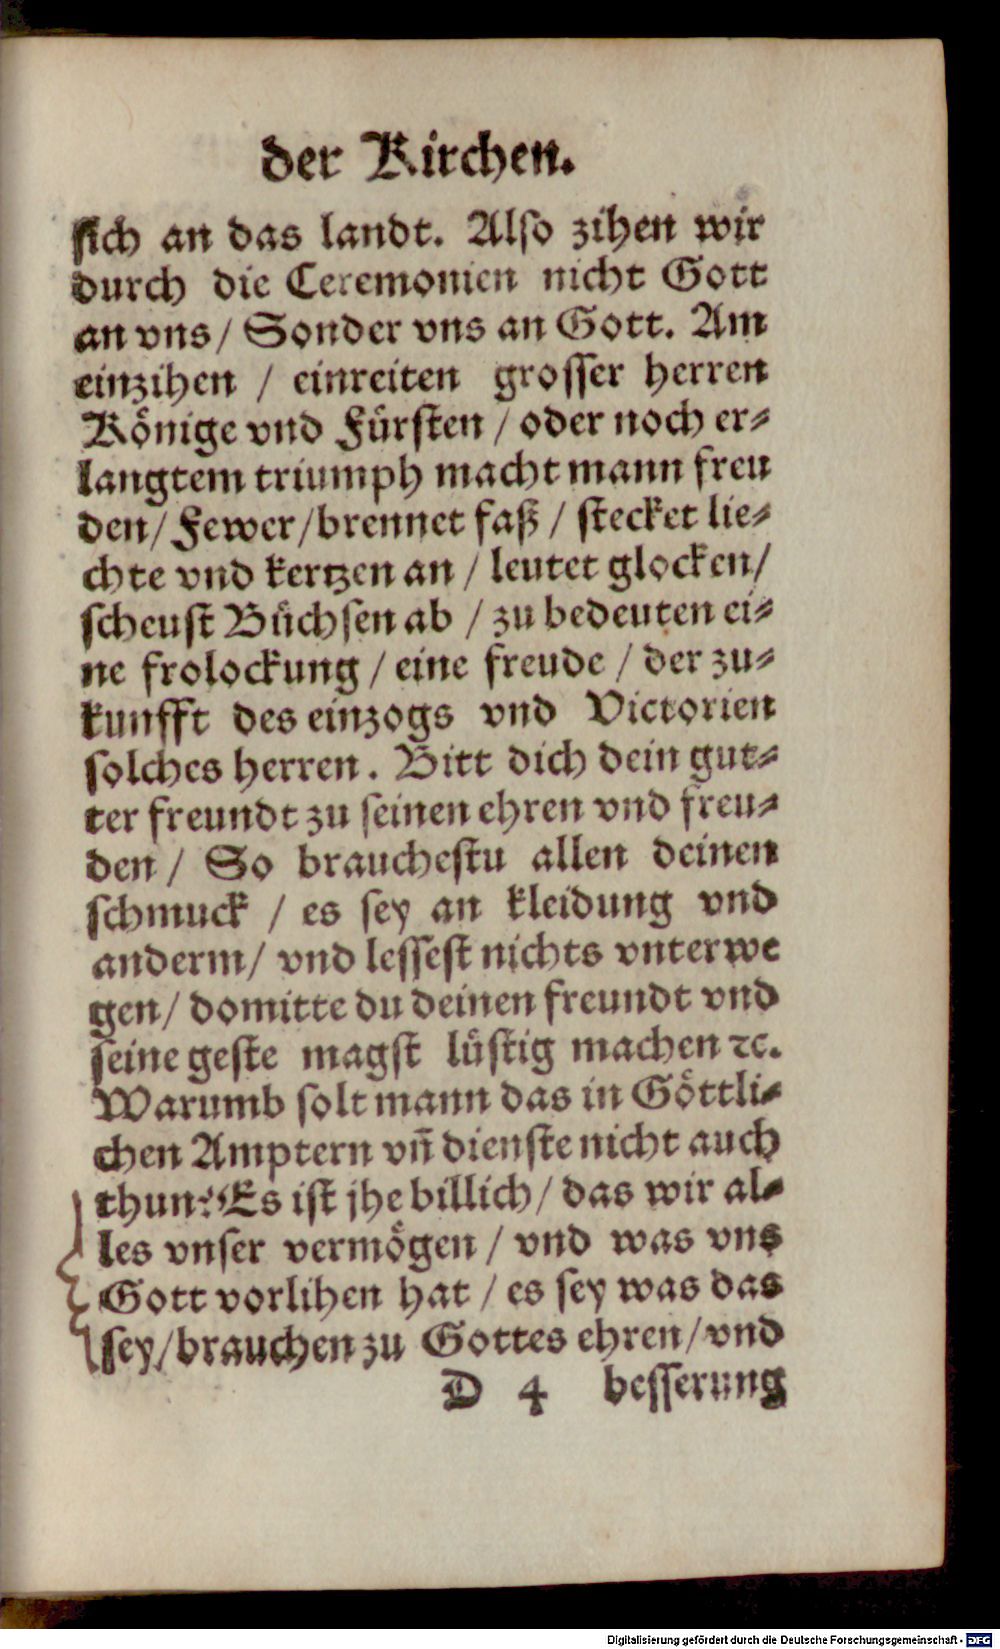 der Kirchen.
sich an das landt. Also zihen wir
durch die Ceremonien nicht Gott
an vns/ Sonder vns an Gott. Am
einzihen / einreiten grosser herren
Könige vnd Fürsten / oder noch er⸗
langtem triumph macht mann freu
den/ Fewer/brennet faß / stecket lie⸗
chte vnd kertzen an / leutet glocken/
scheust Büchsen ab / zu bedeuten ei⸗
ne frolockung / eine freude / der zu⸗
kunfft des einzogs vnd Victorien
solches herren. Bitt dich dein gut⸗
ter freundt zu seinen ehren vnd freu⸗
den / So brauchestu allen deinen
schmuck / es sey an kleidung vnd
anderm/ vnd lessest nichts vnterwe
gen/ domitte du deinen freundt vnd
seine geste magst lüstig machen ꝛc.
Warumb solt mann das in Göttli⸗
chen Amptern vñ dienste nicht auch
thun? Es ist jhe billich/ das wir al⸗
les vnser vermögen / vnd was vns
Gott vorlihen hat / es sey was das
sey/brauchen zu Gottes ehren/ vnd
D 4 besserung
Digitalisierung gefördert durch die Deutsche Forschungsgemeinschaft - DFG